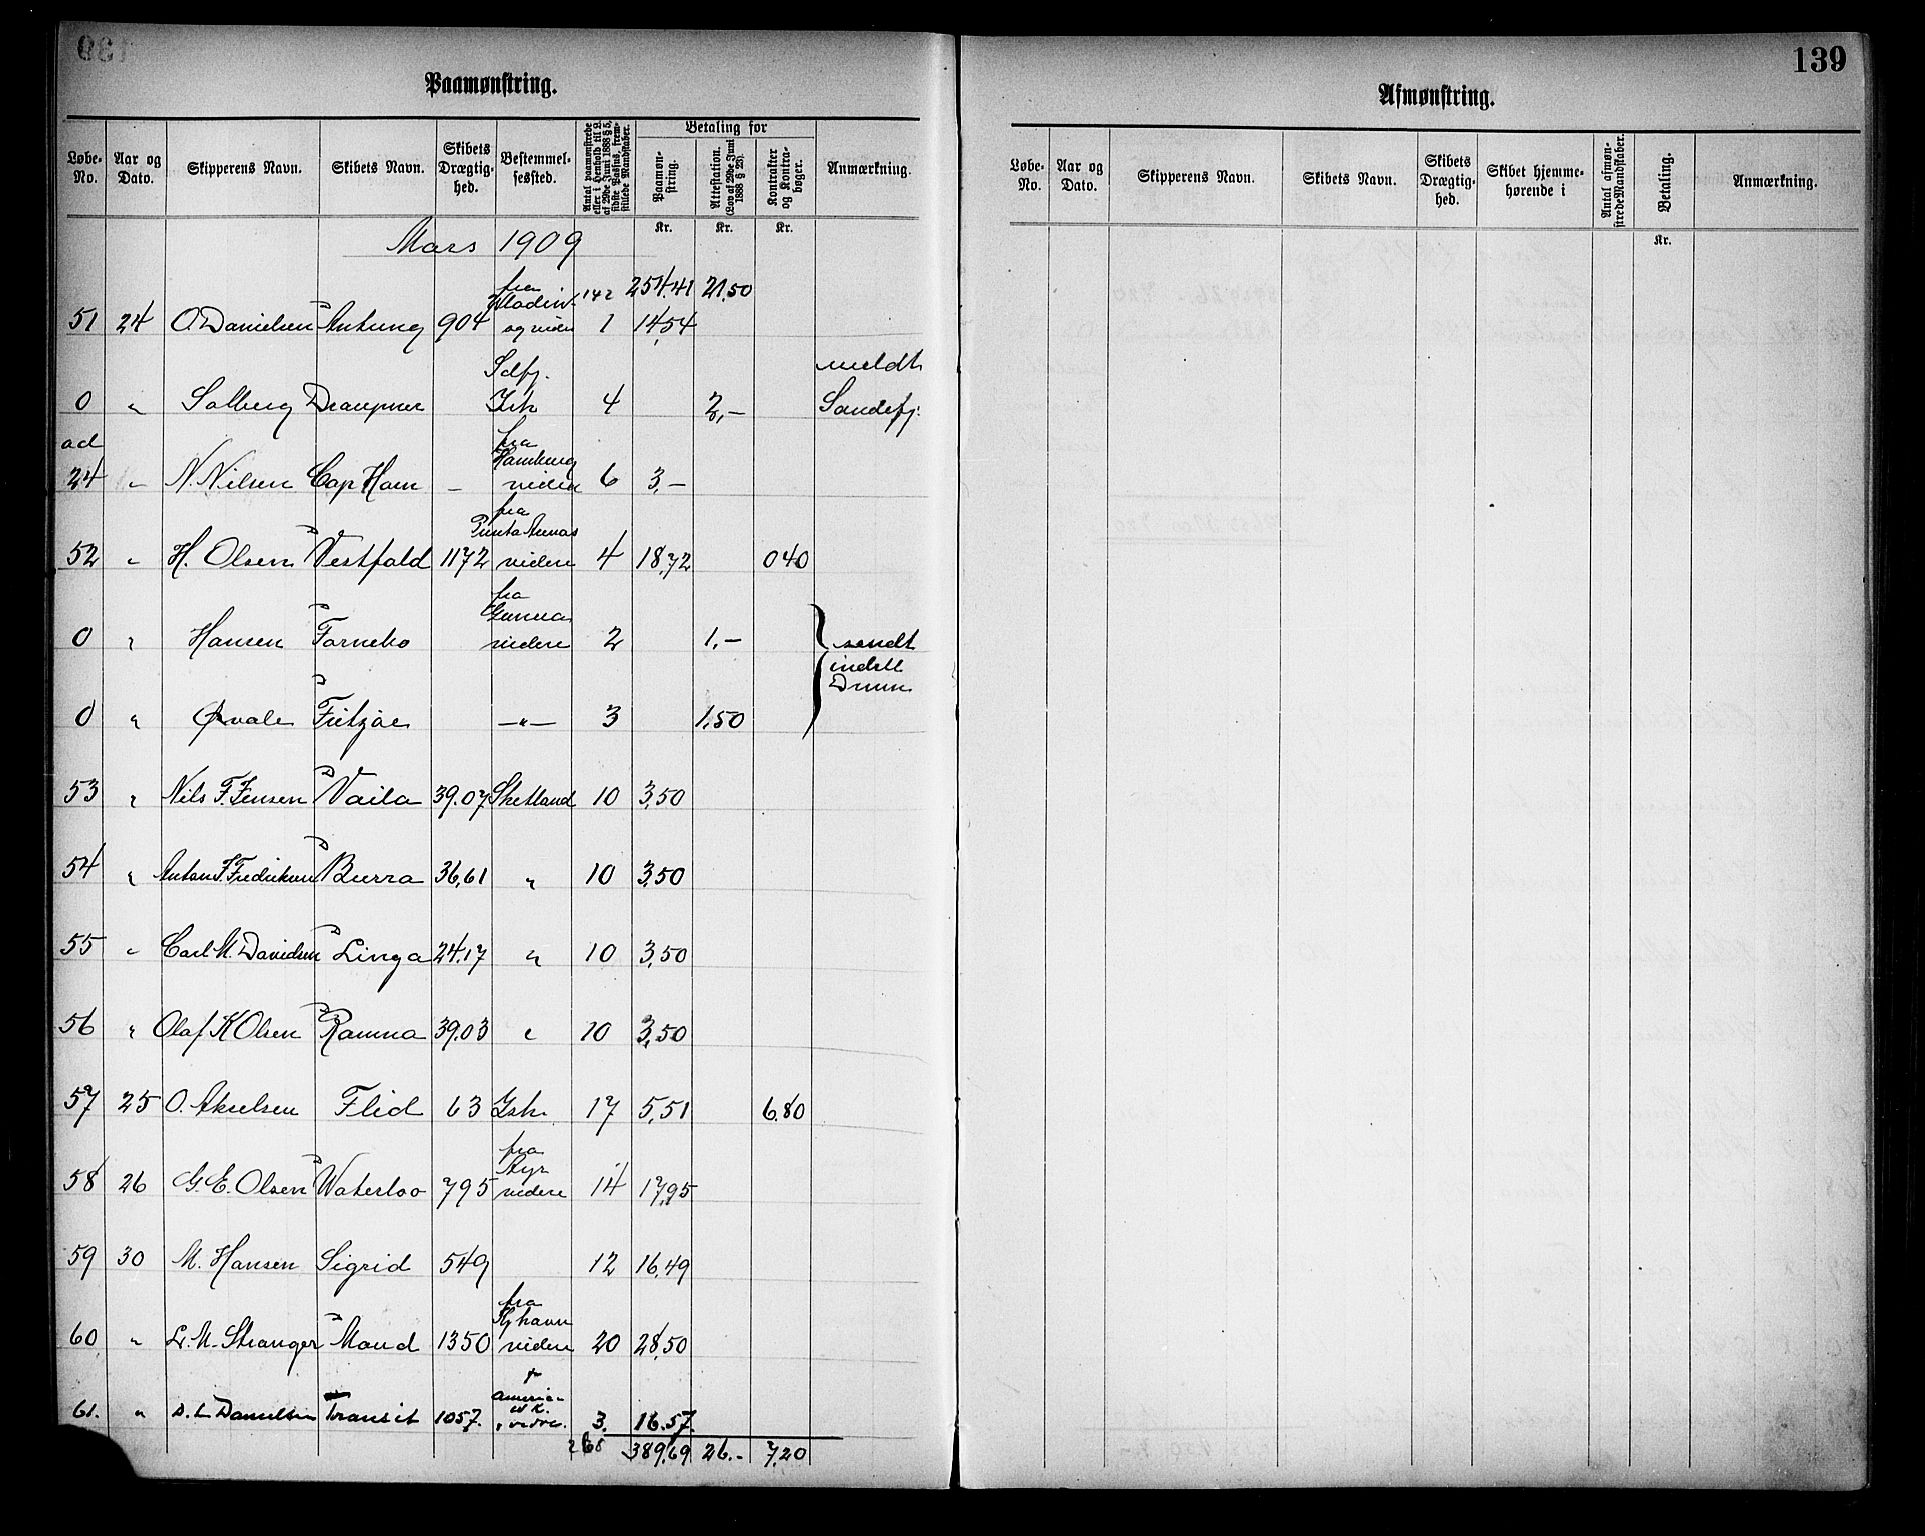 139
Paamønstring.
Løbe-No. Aar og Dato. Skipperens Navn. Skibets Navn. Skibets Drægtighed. Bestemmelsessted. Antal paamønstrede eller i Henhold til L. af 29de Juni 1888 § 5, sidste Passus, fremstillede Mandskaber. Betaling for Paamønstring. Attestation. (Lov af 29de Juni 1888 § 23). Kontrakter og Kontrabøger. Anmærkning.
Kr. Kr. Kr.
Mars 1909
142 254.41 21,50
51 24 O. Danielsen Antung 904 fra og videre 1 14,54
0 " Solberg Draupner Sdfj. Ish 4 2,- meldt Sandefj.
ad 24 " N. Nilsen Cap Horn - fra Hamburg videre 6 3,-
52 " H. Olsen Vestfold 1172 fra Punta Arenas videre 4 18,72 0 40
0 " Hansen Fornebo fra videre 2 1,- sendt
0 " Ørvale Fritzøe -"- 3 1,50 indell Dmm
53 " Nils F. Jensen Vaila 39.07 Shetland 10 3,50
54 " Anton F. Fredriksen Burra 36,61 " 10 3,50
55 " Carl M. Davidsen Linga 24.17 " 10 3,50
56 " Olaf K Olsen Ramna 39.03 " 10 3,50
57 25 O. Akselsen Flid 63 Ish. 17 5,51 6.80
58 26 G. E. Olsen Waterloo 795 fra Ayr videre 14 17,95
59 30 M. Hansen Sigrid 549 12 16,49
60 " L. M. Stranger Maud 1350 fra Kjhavn videre 20 28,50
61. " D. L Danielsen Transit 1057. f America videre. 3. 16.57.
268 389,69 26.- 7,20
139
Afmønstring.
Løbe-No. Aar og Dato. Skipperens Navn. Skibets Navn. Skibets Drægtighed. Skibet hjemmehørende i Antal afmønstrede Mandskaber. Betaling. Anmærkning.
Kr.